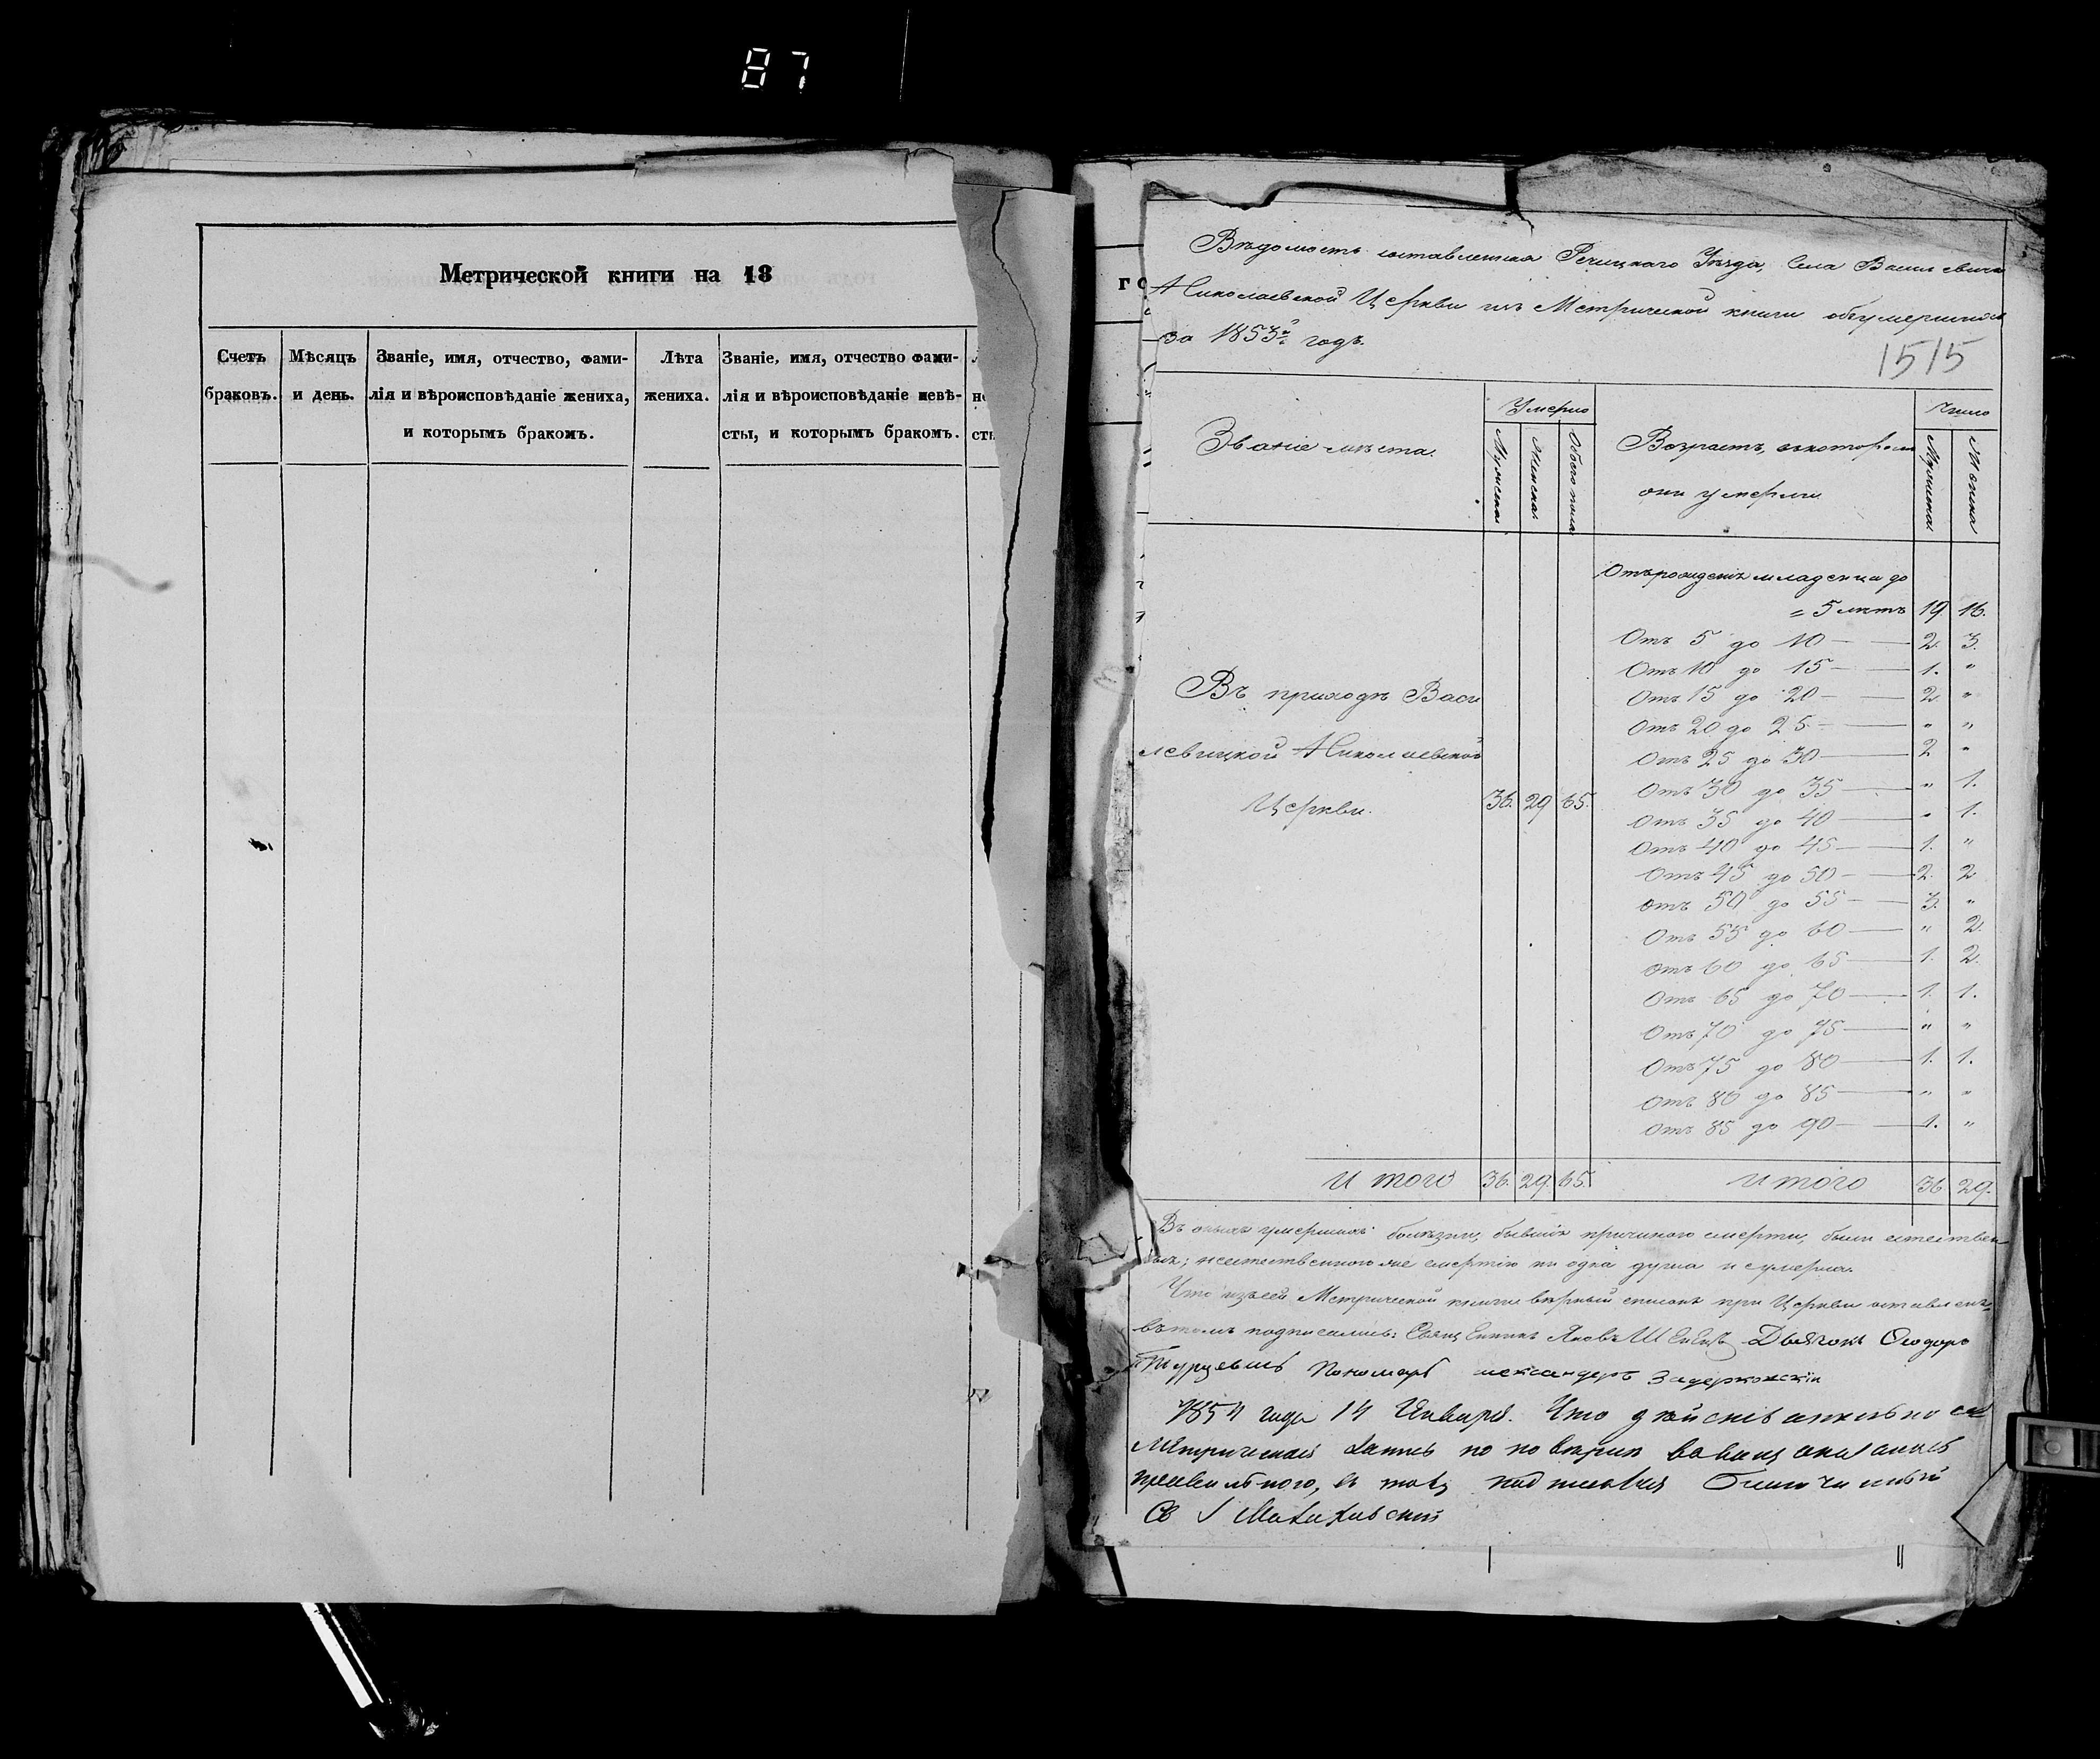 87
Метрической книги на 18
Счетъ браковъ.
Мѣсяцъ и день.
Званіе, имя, отчество, фами-
лія и вѣроисповѣданіе жениха,
и которымъ бракомъ.
Лѣта жениха.
Званіе, имя, отчество фами-
лія и вѣроисповѣданіе невѣ-
сты, и которымъ бракомъ.
го
Вѣдомость составленная Рѣчицкаго Уѣзда, Села Василевичъ
Николаевской Церкви изъ Метрической книги объ умершихъ
за 1853й годъ.
1515
Званіе мѣста.
Умерло
Мужеска
Женска
Обоего пола
Возрастъ, въ которомъ
они умерли
Число
Мужеска
Женска
Отъ рожденія младенца до
= 5 лѣтъ 19 16.
Отъ 5 до 10 — 2. 3.
Отъ 10 до 15 — 1. "
Отъ 15 до 20 — 2. "
Отъ 20 до 25 — " "
Отъ 25 до 30 — 2 "
Отъ 30 до 35 — " 1.
Отъ 35 до 40 — " 1.
Отъ 40 до 45 — 1. "
Отъ 45 до 50 — 2. 2
отъ 50 до 55 — 3. "
Отъ 55 до 60 — " 2.
отъ 60 до 65 — 1. 2.
Отъ 65 до 70 — 1. 1.
Отъ 70 до 75 — " "
Отъ 75 до 80 — 1. 1.
Отъ 80 до 85 — " "
Отъ 85 до 90 — 1. "
Въ приходѣ Васи
левицкой Николаевской
Церкви. 36. 29 65.
Итого 36. 29. 65.
Итого 36 29.
Въ оныхъ умершихъ болѣзни, бывшія причиною смерти, были естествен-
ныя; неестественною же смертію ни одна душа не умерла.
Что изъ сей Метрической книги вѣрный списокъ при Церкви оставленъ,
въ томъ подписались: Священникъ Яковъ Дьячокъ Ѳеодоръ
Пономарь Александеръ
1854 года 14 Января. Что
Метрической по повѣркѣ
въ томъ Благочинный
Св